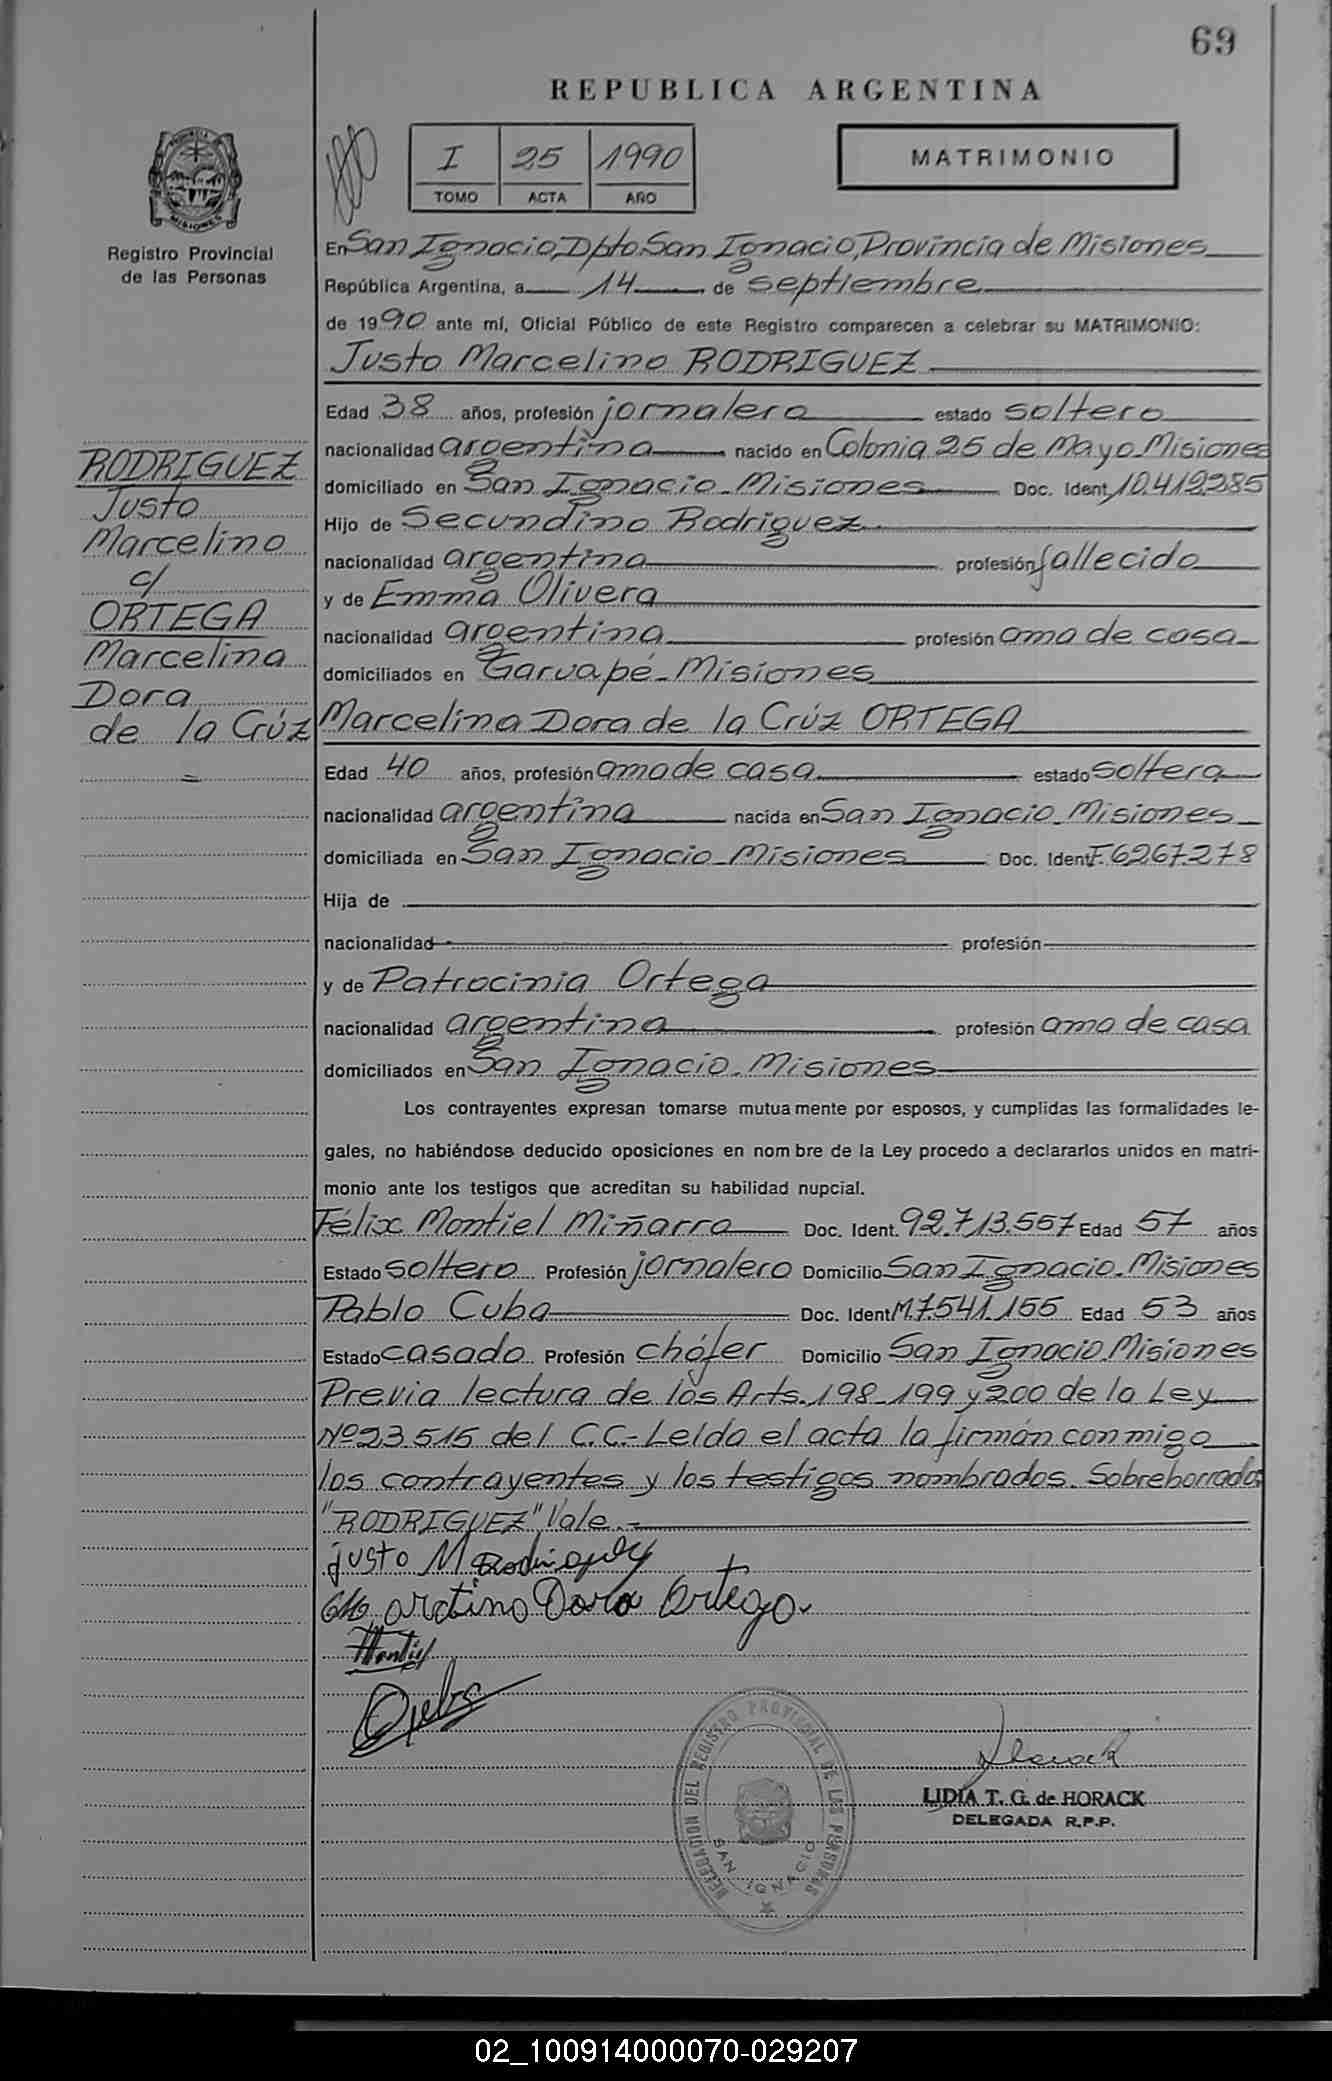 69
REPUBLICA ARGENTINA
I 25 1990
TOMO ACTA AÑO
MATRIMONIO
MISIONES
Registro Provincial
de las Personas
En San Ignacio, Dpto. San Ignacio, Provincia de Misiones
República Argentina, a 14 de septiembre
de 1990 ante mí, Oficial Público de este Registro comparecen a celebrar su MATRIMONIO:
Justo Marcelino RODRIGUEZ
Edad 38 años, profesión jornalero estado soltero
nacionalidad argentina nacido en Colonia 25 de Mayo Misiones
domiciliado en San Ignacio-Misiones Doc. Ident. 10.412.285
Hijo de Secundino Rodriguez
nacionalidad argentina profesión fallecido
y de Emma Olivera
nacionalidad argentina profesión ama de casa
domiciliados en Garuapé-Misiones
RODRIGUEZ
Justo
Marcelino
c/
ORTEGA
Marcelina
Dora
de la Crúz
Marcelina Dora de la Crúz ORTEGA
Edad 40 años, profesión ama de casa estado soltera
nacionalidad argentina nacida en San Ignacio-Misiones
domiciliada en San Ignacio-Misiones Doc. Ident. F.6.267.278
Hija de
nacionalidad profesión
y de Patrocinia Ortega
nacionalidad argentina profesión ama de casa
domiciliados en San Ignacio-Misiones
Los contrayentes expresan tomarse mutuamente por esposos, y cumplidas las formalidades le-
gales, no habiéndose deducido oposiciones en nombre de la Ley procedo a declararlos unidos en matri-
monio ante los testigos que acreditan su habilidad nupcial.
Félix Montiel Miñarro Doc. Ident. 92.713.557 Edad 57 años
Estado soltero Profesión jornalero Domicilio San Ignacio-Misiones
Pablo Cuba Doc. Ident M.7.541.155 Edad 53 años
Estado casado Profesión chófer Domicilio San Ignacio-Misiones
Previa lectura de los Arts. 198-199 y 200 de la Ley
Nº 23.515 del C.C.- Leída el acta la firmán conmigo
los contrayentes y los testigos nombrados. Sobreborrado:
"RODRIGUEZ" Vale.-
justo M Rodriguez
Dora Ortega.
Montiel
Cuba
DELEGACION DEL REGISTRO PROVINCIAL DE LAS PERSONAS
SAN IGNACIO
Horack
LIDIA T. G. de HORACK
DELEGADA R.P.P.
02_100914000070-029207